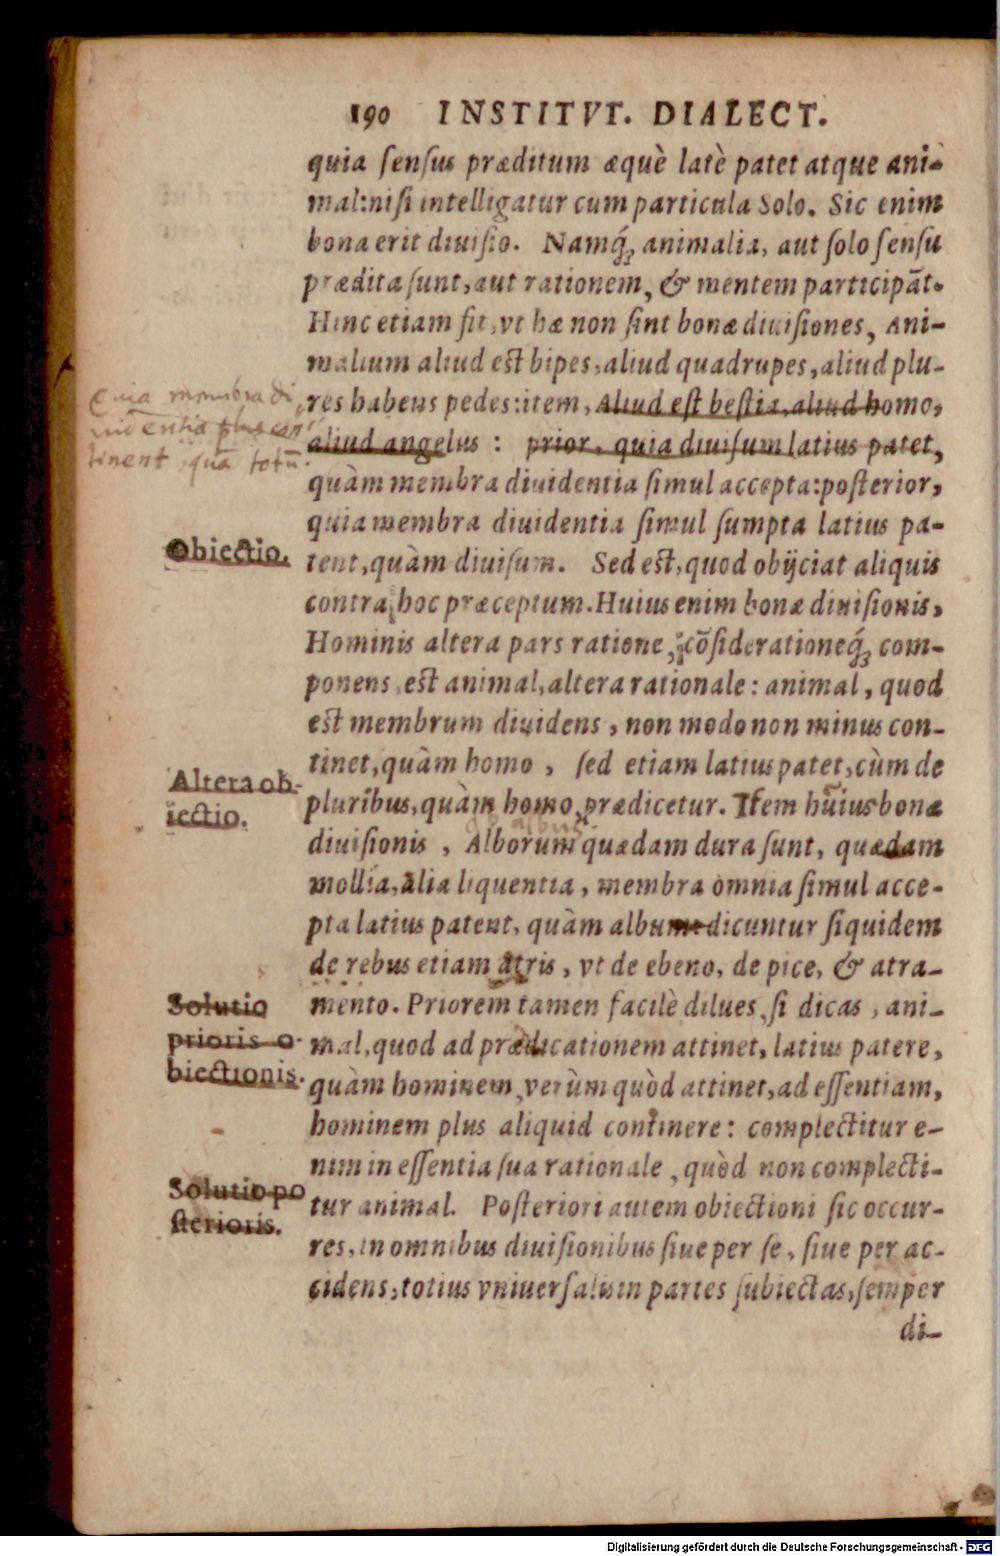 190 INSTITVT. DIALECT.
quia sensus præditum æquè latè patet atque ani-
mal: nisi intelligatur cum particula Solo. Sic enim
bona erit diuisio. Namq́ꝫ animalia, aut solo sensu
prædita sunt, aut rationem, & mentem participāt.
Hinc etiam fit, vt hæ non sint bonæ diuisiones, Ani-
malium aliud est bipes, aliud quadrupes, aliud plu-
res habens pedes: item, Aliud est bestia, aliud homo,
aliud angelus : prior, quia diuisum latius patet,
quàm membra diuidentia simul accepta: posterior,
quia membra diuidentia simul sumpta latius pa-
tent, quàm diuisum. Sed est, quod obijciat aliquis
contra hoc præceptum. Huius enim bonæ diuisionis,
Hominis altera pars ratione, cōsiderationeq́ꝫ com-
ponens est animal, altera rationale: animal, quod
est membrum diuidens, non modo non minus con-
tinet, quàm homo, sed etiam latius patet, cùm de
pluribus, quàm homo prædicetur. Item huius bonæ
diuisionis, Alborum quædam dura sunt, quædam
mollia, alia liquentia, membra omnia simul acce-
pta latius patent, quàm album: dicuntur siquidem
de rebus etiam atris, vt de ebeno, de pice, & atra-
mento. Priorem tamen facilè dilues, si dicas, ani-
mal, quod ad prædicationem attinet, latius patere,
quàm hominem, verùm quòd attinet, ad essentiam,
hominem plus aliquid continere: complectitur e-
nim in essentia sua rationale, quòd non complecti-
tur animal. Posteriori autem obiectioni sic occur-
res, in omnibus diuisionibus siue per se, siue per ac-
cidens, totius vniuersalium partes subiectas, semper
di-
Quia membra di
uidentia plus con
tinent, quā totū.
Obiectio.
Altera ob-
iectio.
Solutio
prioris o-
biectionis.
Solutio po
sterioris.
Digitalisierung gefördert durch die Deutsche Forschungsgemeinschaft - DFG